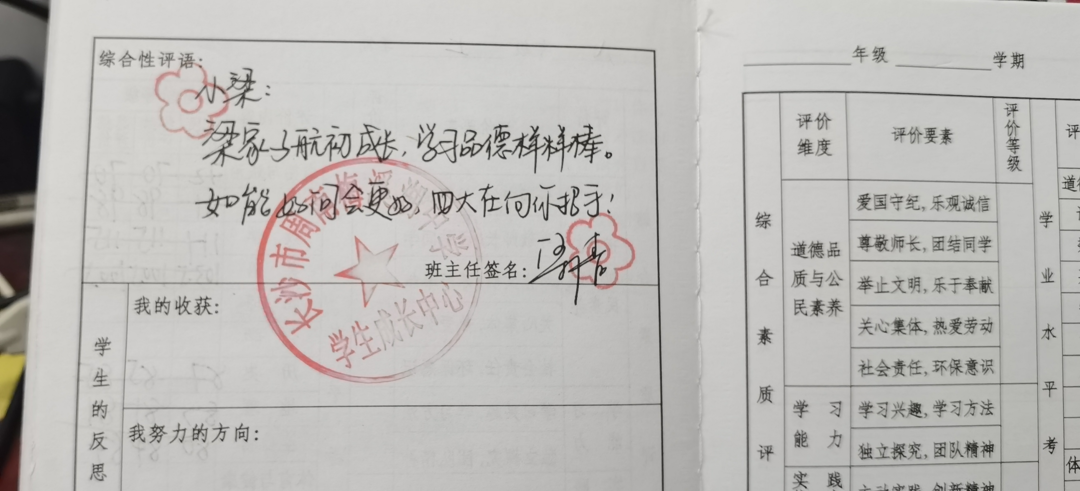 综合性评语:
小梁:
梁家子航初成长,学习品德样样棒。
如能好问会更好,四大在向你招手!
班主任签名:
长沙市周南梅溪湖中学
学生成长中心
学生的反思
我的收获:
我努力的方向:
年级 学期
综合素质评
评价维度 评价要素 评价等级
道德品质与公民素养
爱国守纪,乐观诚信
尊敬师长,团结同学
举止文明,乐于奉献
关心集体,热爱劳动
社会责任,环保意识
学习能力
学习兴趣,学习方法
独立探究,团队精神
实践
主动实践,创新精神
学业水平考